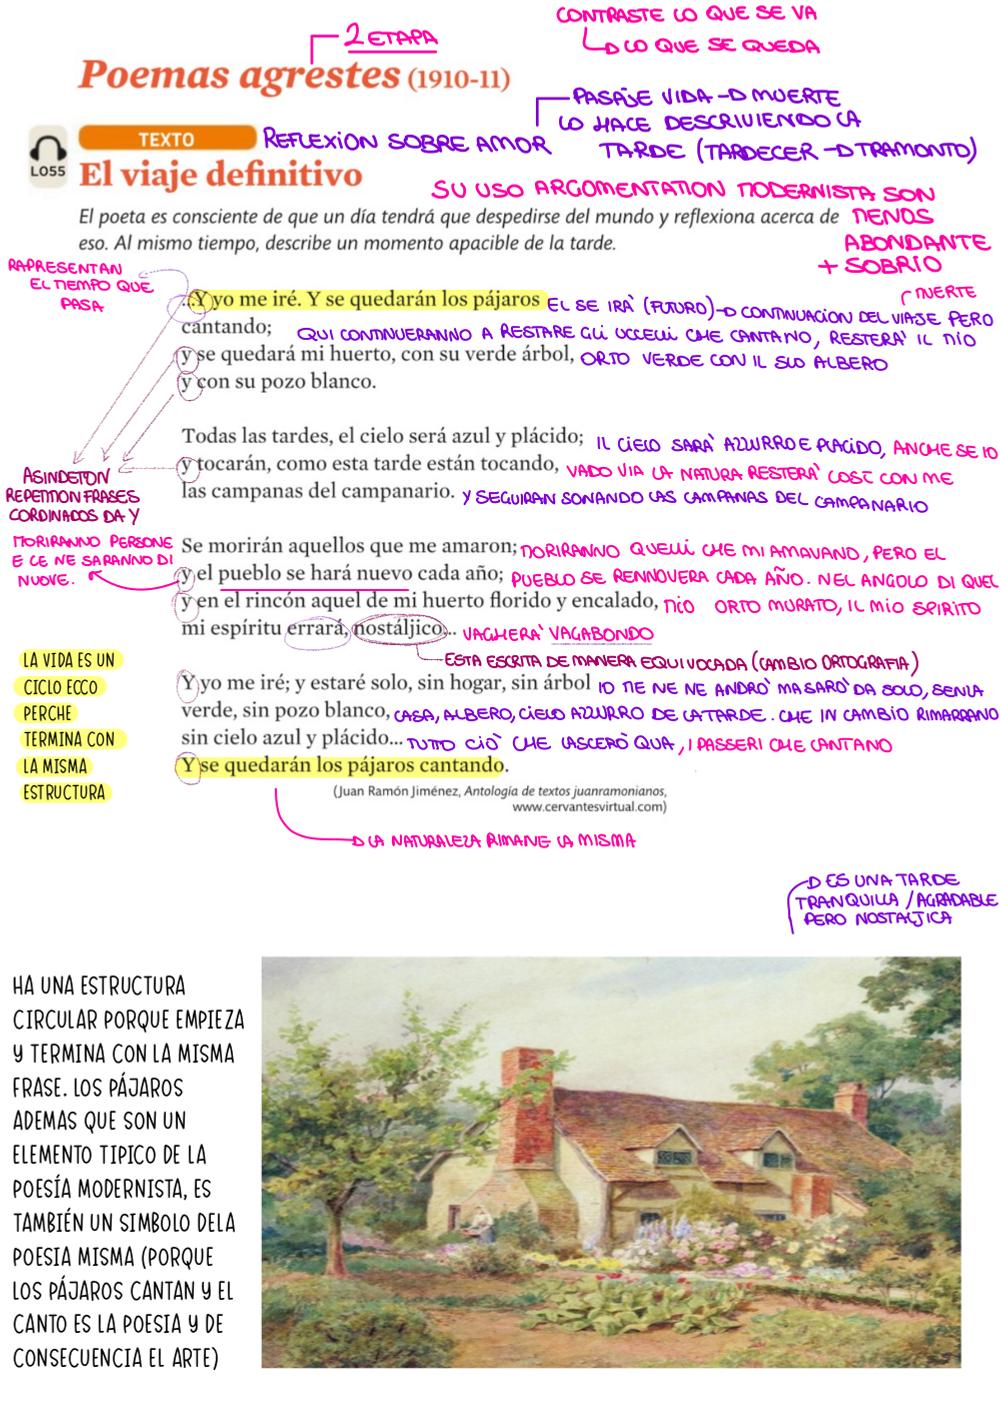 2 ETAPA
CONTRASTE LO QUE SE VA
LO QUE SE QUEDA
Poemas agrestes (1910-11)
PASAJE VIDA → MUERTE
LO HACE DESCRIVIENDO LA
TARDE (TARDECER → TRAMONTO)
TEXTO
REFLEXION SOBRE AMOR
LO55
El viaje definitivo
SU USO ARGOMENTATION MODERNISTA SON
MENOS
ABONDANTE
+ SOBRIO
El poeta es consciente de que un día tendrá que despedirse del mundo y reflexiona acerca de
eso. Al mismo tiempo, describe un momento apacible de la tarde.
RAPRESENTAN
EL TIEMPO QUE
PASA
MUERTE
...Y yo me iré. Y se quedarán los pájaros
EL SE IRA' (FUTURO) → CONTINUACION DEL VIAJE PERO
cantando;
QUI CONTINUERANNO A RESTARE GLI UCCELLI CHE CANTANO, RESTERA' IL MIO
y se quedará mi huerto, con su verde árbol,
ORTO VERDE CON IL SUO ALBERO
y con su pozo blanco.
Todas las tardes, el cielo será azul y plácido;
IL CIELO SARA' AZZURRO E PLACIDO, ANCHE SE IO
y tocarán, como esta tarde están tocando,
VADO VIA LA NATURA RESTERA' COSI CON ME
las campanas del campanario.
Y SEGUIRAN SONANDO LAS CAMPANAS DEL CAMPANARIO
ASINDETON
REPETITION FRASES
CORDINADOS DA Y
MORIRANNO PERSONE
E CE NE SARANNO DI
NUOVE.
Se morirán aquellos que me amaron;
MORIRANNO QUELLI CHE MI AMAVANO, PERO EL
y el pueblo se hará nuevo cada año;
PUEBLO SE RENNOVERA CADA AÑO. NEL ANGOLO DI QUEL
y en el rincón aquel de mi huerto florido y encalado,
MIO ORTO MURATO, IL MIO SPIRITO
mi espíritu errará, nostáljico...
VAGHERA' VAGABONDO
ESTA ESCRITA DE MANERA EQUIVOCADA (CAMBIO ORTOGRAFIA)
LA VIDA ES UN
CICLO ECCO
PERCHE
TERMINA CON
LA MISMA
ESTRUCTURA
Y yo me iré; y estaré solo, sin hogar, sin árbol
IO ME NE NE ANDRO' MA SARO' DA SOLO, SENZA
verde, sin pozo blanco,
CASA, ALBERO, CIELO AZZURRO DE LA TARDE. CHE IN CAMBIO RIMARRANO
sin cielo azul y plácido...
TUTTO CIO' CHE LASCERO' QUA, I PASSERI CHE CANTANO
Y se quedarán los pájaros cantando.
(Juan Ramón Jiménez, Antología de textos juanramonianos,
www.cervantesvirtual.com)
LA NATURALEZA RIMANE LA MISMA
ES UNA TARDE
TRANQUILLA / AGRADABLE
PERO NOSTALJICA
HA UNA ESTRUCTURA
CIRCULAR PORQUE EMPIEZA
Y TERMINA CON LA MISMA
FRASE. LOS PÁJAROS
ADEMAS QUE SON UN
ELEMENTO TIPICO DE LA
POESÍA MODERNISTA, ES
TAMBIÉN UN SIMBOLO DELA
POESIA MISMA (PORQUE
LOS PÁJAROS CANTAN Y EL
CANTO ES LA POESIA Y DE
CONSECUENCIA EL ARTE)